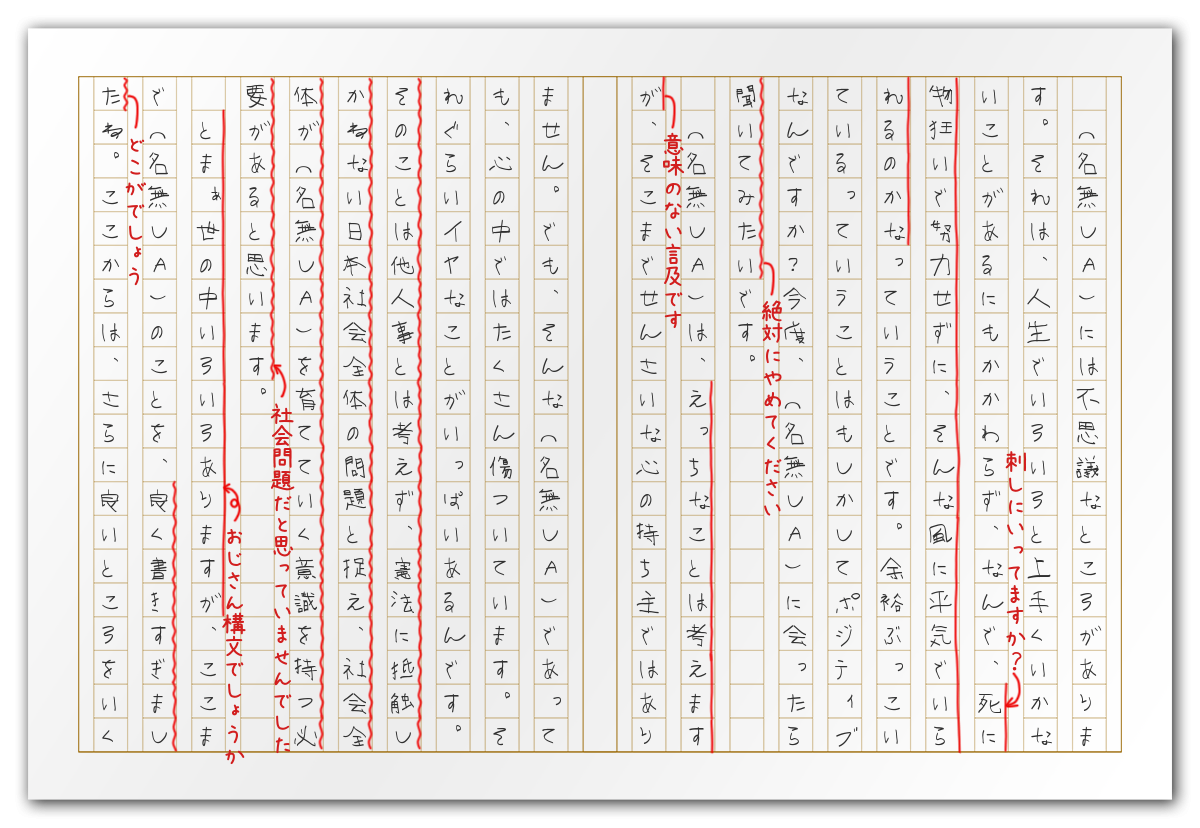 （名無しA）には不思議なところがありま
す。それは、人生でいろいろと上手くいかな
刺しにいってますか？
いことがあるにもかかわらず、なんで、死に
物狂いで努力せずに、そんな風に平気でいら
れるのかなっていうことです。余裕ぶっこい
ているっていうことはもしかしてポジティブ
なんですか？今度、（名無しA）に会ったら
絶対にやめてください
聞いてみたいです。
（名無しA）は、えっちなことは考えます
意味のない言及です
が、そこまでせんさいな心の持ち主ではあり
ません。でも、そんな（名無しA）であって
も、心の中ではたくさん傷ついています。そ
れぐらいイヤなことがいっぱいあるんです。
そのことは他人事とは考えず、憲法に抵触し
かねない日本社会全体の問題と捉え、社会全
体が（名無しA）を育てていく意識を持つ必
社会問題だと思っていませんでした
要があると思います。
おじさん構文でしょうか
とまぁ世の中いろいろありますが、ここま
で（名無しA）のことを、良く書きすぎまし
どこがでしょう
たね。ここからは、さらに良いところをいく